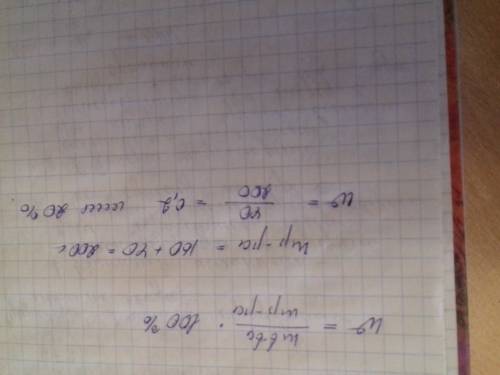 w = m в-ва / m р-ра · 100%
m р-ра = 160 + 40 = 200 г
w = 40 / 200 = 0,2 или 20%